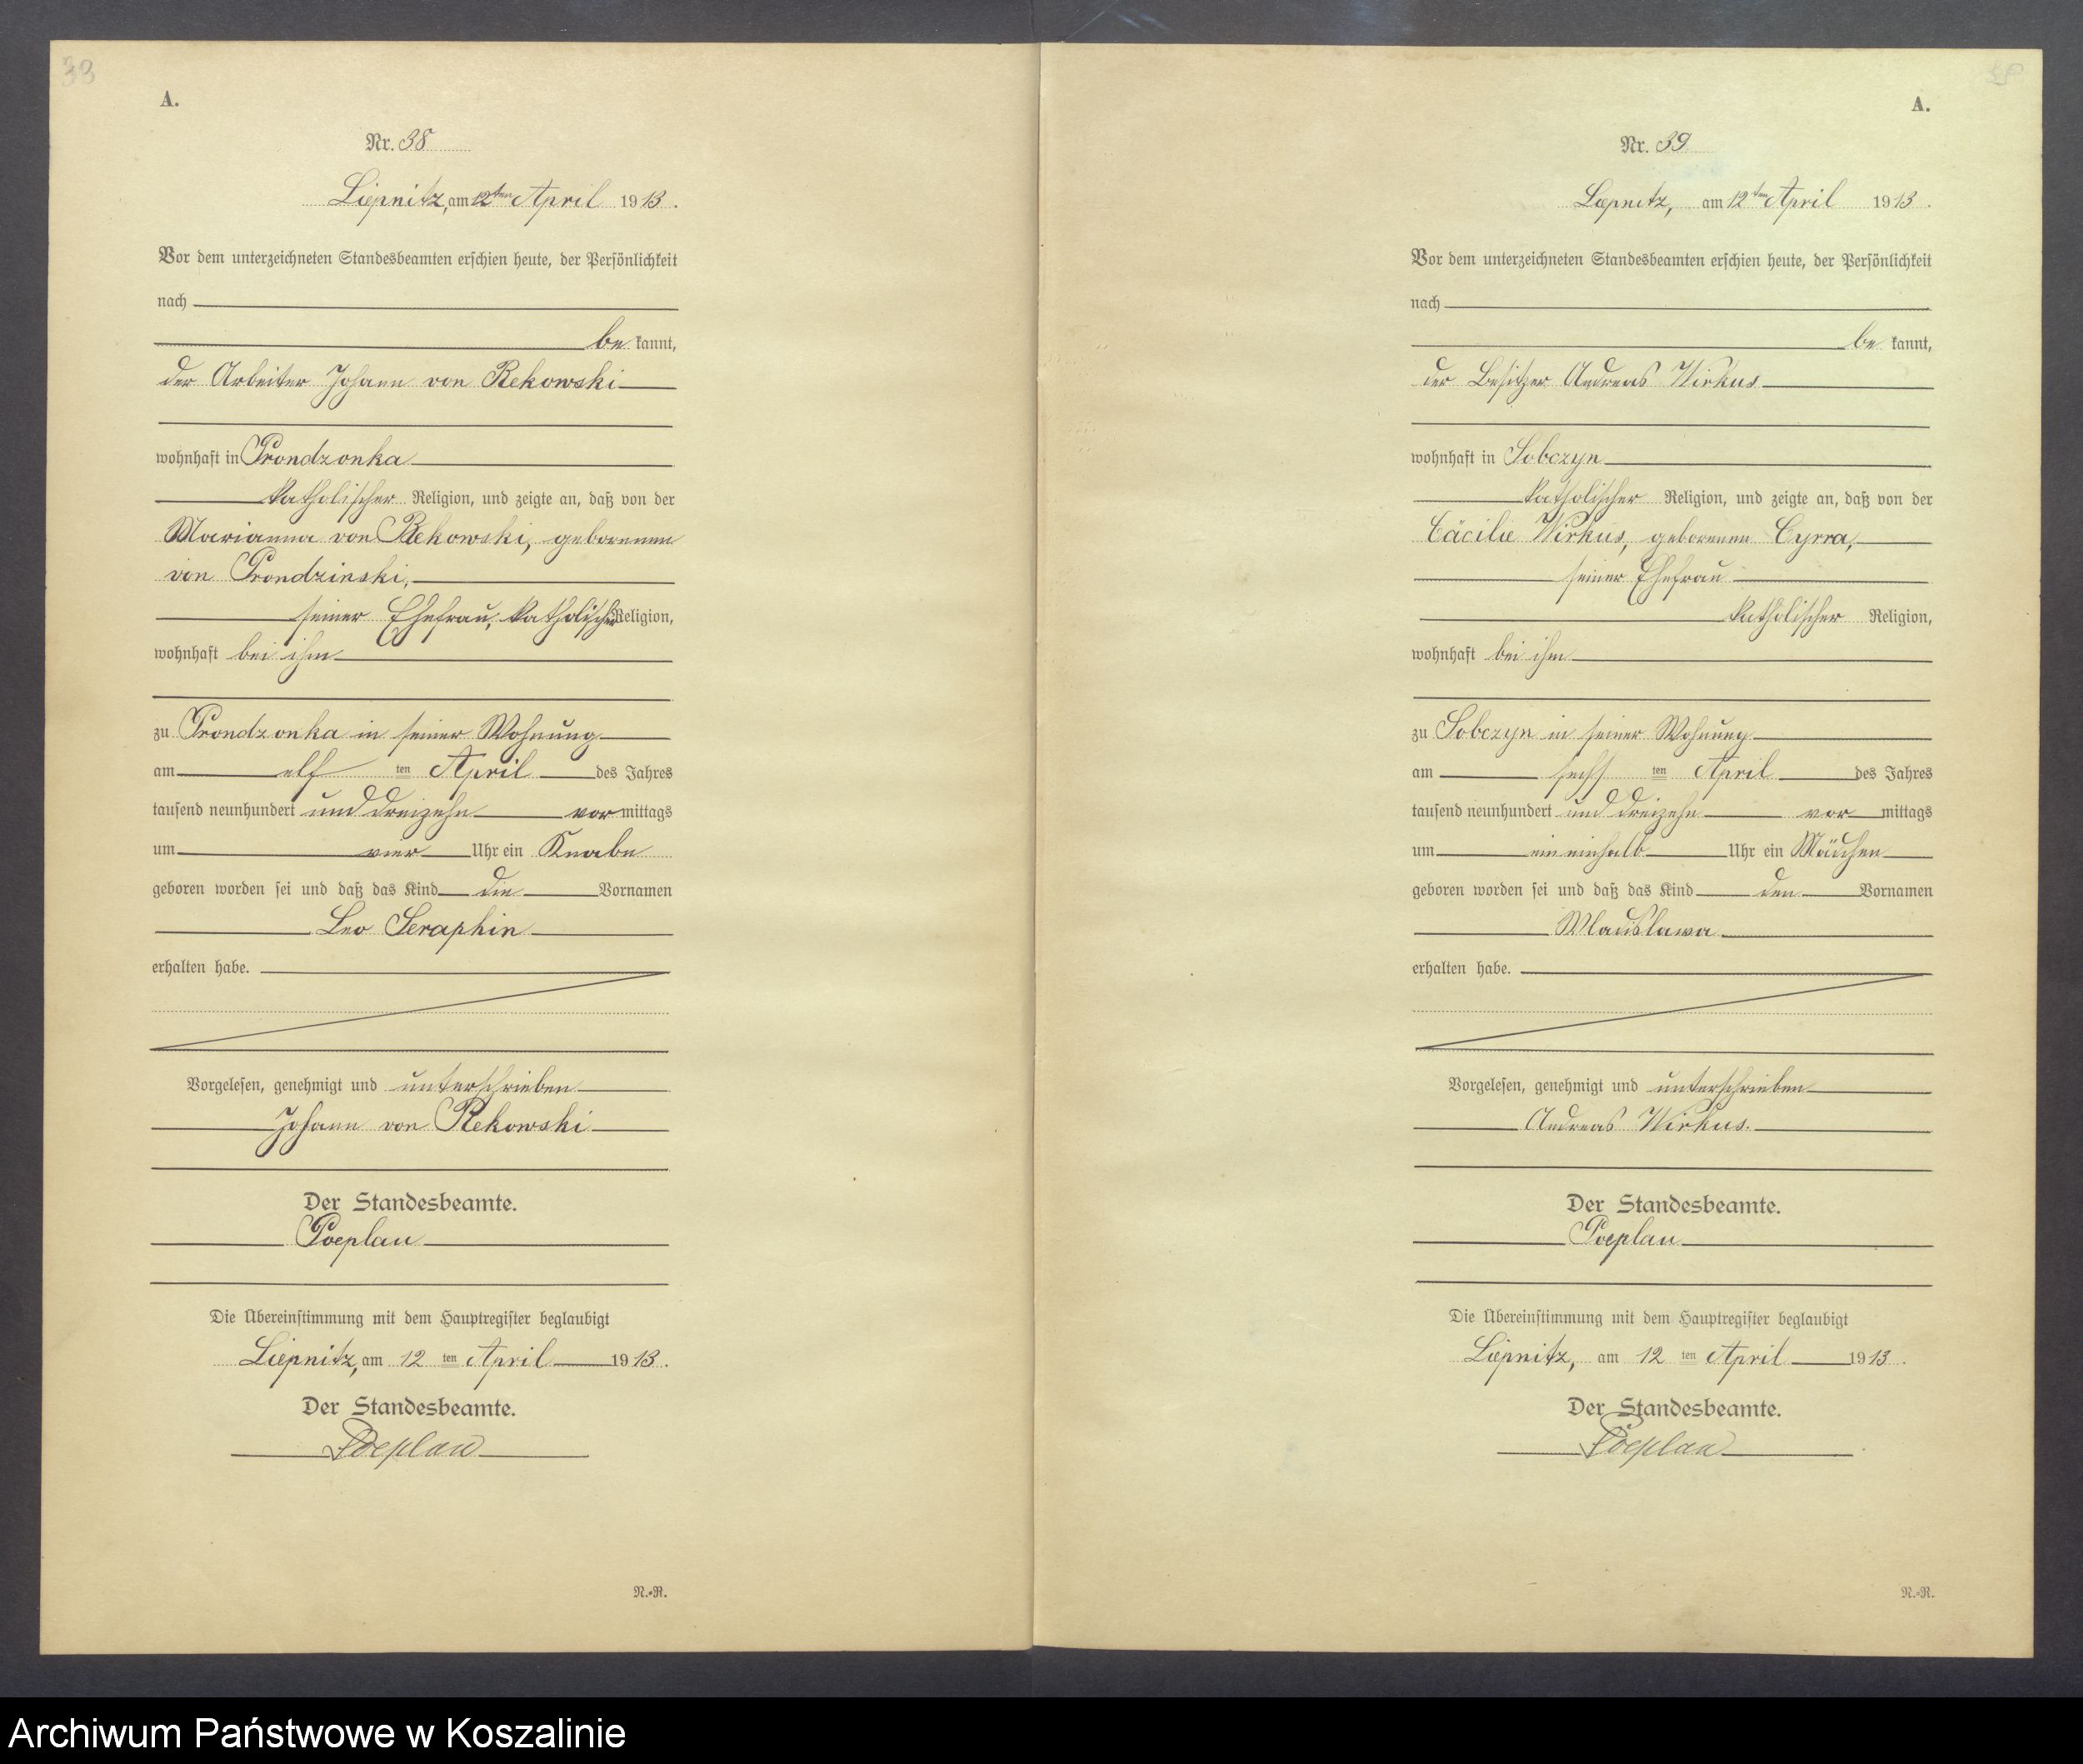 38
A.
Nr. 38
Liepnitz, am 12ten April 1913.
Vor dem unterzeichneten Standesbeamten erschien heute, der Persönlichkeit
nach
be kannt,
der Arbeiter Johann von Rekowski
wohnhaft in Prondzonka
katholischer Religion, und zeigte an, daß von der
Marianna von Rekowski, geborenen
von Prondzinski,
seiner Ehefrau, katholischer Religion,
wohnhaft bei ihm
zu Prondzonka in seiner Wohnung
am elf ten April des Jahres
tausend neunhundert und dreizehn vor mittags
um vier Uhr ein Knabe
geboren worden sei und daß das Kind die Vornamen
Leo Seraphin
erhalten habe.
Vorgelesen, genehmigt und unterschrieben
Johann von Rekowski
Der Standesbeamte.
Poeplau
Die Übereinstimmung mit dem Hauptregister beglaubigt
Liepnitz, am 12 ten April 1913.
Der Standesbeamte.
Poeplau
N.-R.
A.
Nr. 39
Liepnitz, am 12ten April 1913.
Vor dem unterzeichneten Standesbeamten erschien heute, der Persönlichkeit
nach
be kannt,
der Besitzer Andreas Wirkus
wohnhaft in Sobczyn
katholischer Religion, und zeigte an, daß von der
Cäcilie Wirkus, geborenen Cyrra,
seiner Ehefrau
katholischer Religion,
wohnhaft bei ihm
zu Sobczyn in seiner Wohnung
am sechs ten April des Jahres
tausend neunhundert und dreizehn vor mittags
um ein einhalb Uhr ein Mädchen
geboren worden sei und daß das Kind den Vornamen
Wladislawa
erhalten habe.
Vorgelesen, genehmigt und unterschrieben
Andreas Wirkus.
Der Standesbeamte.
Poeplau
Die Übereinstimmung mit dem Hauptregister beglaubigt
Liepnitz, am 12 ten April 1913.
Der Standesbeamte.
Poeplau
N.-R.
Archiwum Państwowe w Koszalinie